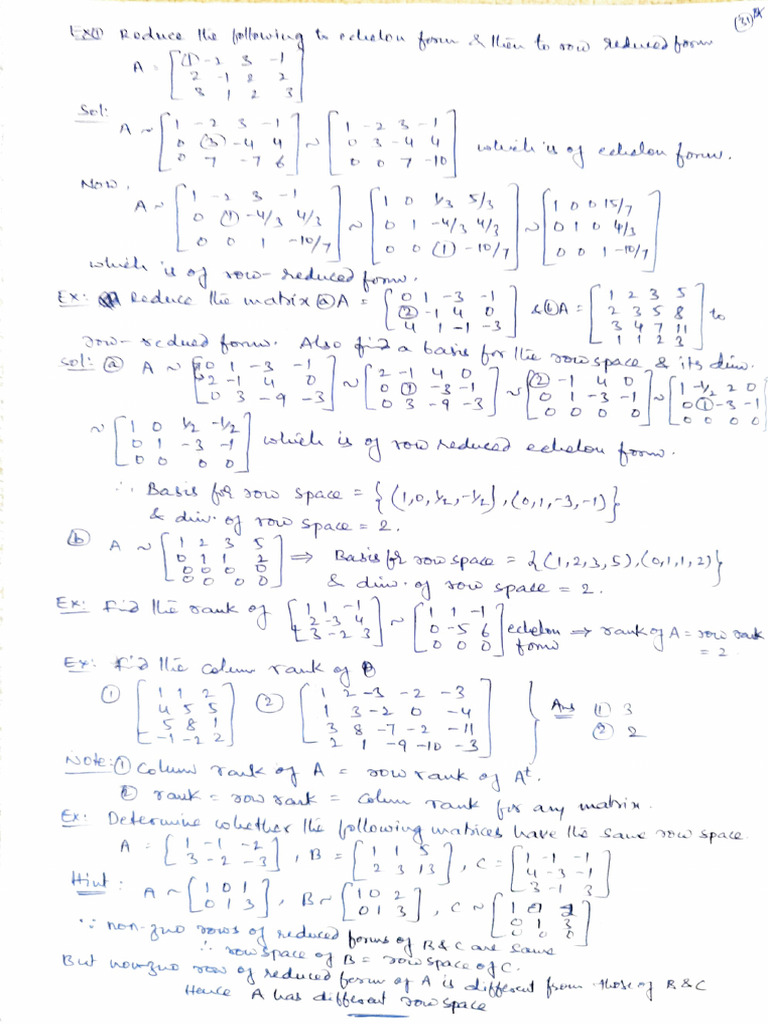 (31)
Ex① Reduce the following to echelon form & then to row reduced form
A = [① -2 3 -1
2 -1 2 2
3 1 2 3]
Sol:
A ~ [1 -2 3 -1
0 ③ -4 4
0 7 -7 6] ~ [1 -2 3 -1
0 3 -4 4
0 0 7 -10] which is of echelon form.
Now,
A ~ [1 -2 3 -1
0 ① -4/3 4/3
0 0 1 -10/7] ~ [1 0 1/3 5/3
0 1 -4/3 4/3
0 0 ① -10/7] ~ [1 0 0 15/7
0 1 0 4/3
0 0 1 -10/7]
which is of row-reduced form.
Ex: Reduce the matrix ⓐ A = [0 1 -3 -1
② -1 4 0
4 1 -1 -3] & ⓑ A = [1 2 3 5
2 3 5 8
3 4 7 11
1 1 2 3] to
row-reduced form. Also find a basis for the row space & its dim.
Sol: ⓐ A ~ [0 1 -3 -1
2 -1 4 0
0 3 -9 -3] ~ [2 -1 4 0
0 ① -3 -1
0 3 -9 -3] ~ [② -1 4 0
0 1 -3 -1
0 0 0 0] ~ [1 -1/2 2 0
0 ① -3 -1
0 0 0 0]
~ [1 0 1/2 -1/2
0 1 -3 -1
0 0 0 0] which is of row reduced echelon form.
∴ Basis for row space = {(1,0,1/2,-1/2),(0,1,-3,-1)}
& dim. of row space = 2.
ⓑ A ~ [1 2 3 5
0 1 1 2
0 0 0 0
0 0 0 0] ⟹ Basis for row space = {(1,2,3,5),(0,1,1,2)}
& dim. of row space = 2.
Ex: Find the rank of [1 1 -1
2 -3 4
3 -2 3] ~ [1 1 -1
0 -5 6
0 0 0] echelon form ⟹ rank of A = row rank
= 2
Ex: Find the column rank of
① [1 1 2
4 5 5
5 8 1
-1 -2 2] ② [1 2 -3 -2 -3
1 3 -2 0 -4
3 8 -7 -2 -11
2 1 -9 -10 -3] } Ans ① 3
② 2
Note: ① Column rank of A = row rank of Aᵗ.
② rank = row rank = colum rank for any matrix.
Ex: Determine whether the following matrices have the same row space.
A = [1 -1 -2
3 -2 -3], B = [1 1 5
2 3 13], C = [1 -1 -1
4 -3 -1
3 -1 3]
Hint: A ~ [1 0 1
0 1 3], B ~ [1 0 2
0 1 3], C ~ [1 0 2
0 1 3
0 0 0]
∵ non-zero rows of reduced forms of B & C are same
∴ row space of B = row space of C.
But non-zero row of reduced form of A is different from those of B & C
Hence A has different row space